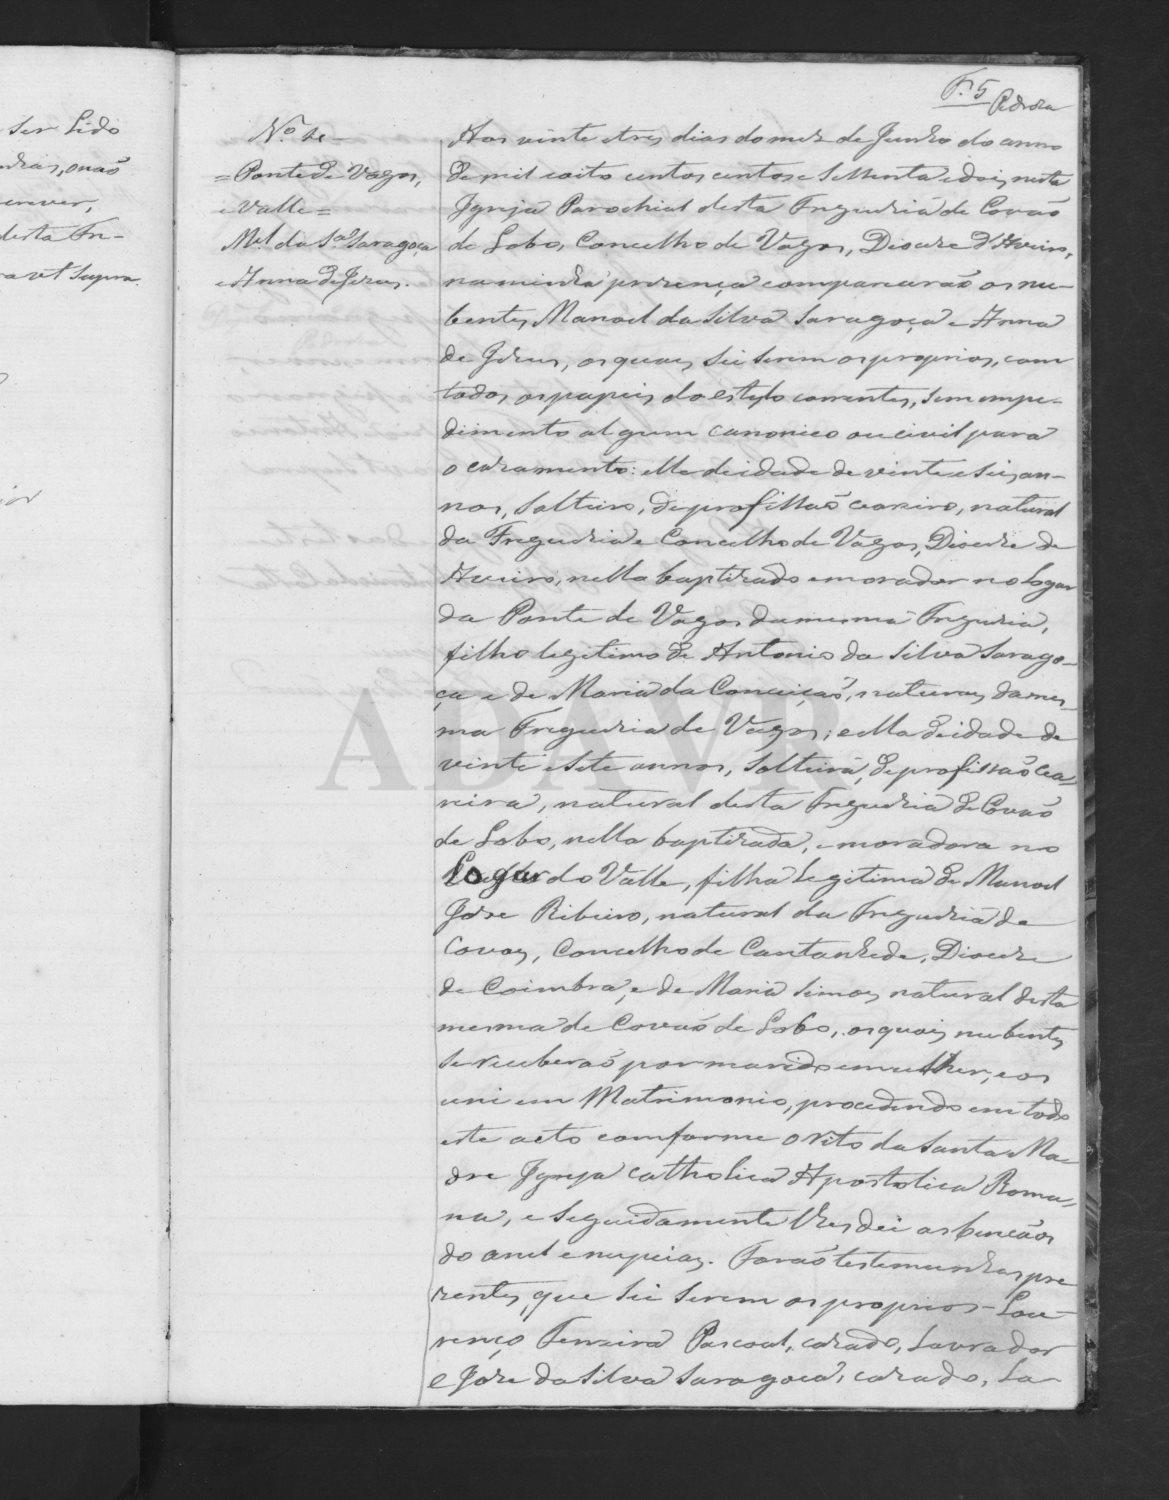 Ser Lido
enever,
desta Fre-
ra ut Supra.
F. 5
Pedroza
N.º 4
= Ponte de Vagos,
e Valle =
M.el da S.a Saragoça
e Anna de Jesus.
Aos vinte e tres dias do mez de Junho do anno
de mil e oito centos centos e settenta e dois nesta
Igreja Parochial desta Freguezia de Covão
de Lobo, Concelho de Vagos, Diocese d'Aveiro,
na minha prezença comparecerão os nu-
bentes Manoel da Silva Saragoça e Anna
de Jesus, os quaes sei serem os proprios, com
todos os papeis do estylo correntes, sem empe-
dimento algum canonico ou civil para
o cazamento: elle de idade de vinte e seis an-
nos, Solteiro, de profissão ceareiro, natural
da Freguezia e Concelho de Vagos, Diocese de
Aveiro, nella baptizado e morador no logar
da Ponte de Vagos da mesma Freguezia,
filho legitimo de Antonio da Silva Sarago-
ça e de Maria da Conceição, naturaes da mes-
ma Freguezia de Vagos; e ella de idade de
vinte e sete annos, Solteira, de profissão cea-
reira, natural desta Freguezia de Covão
de Lobo, nella baptizada, e moradora no
Logar do Valle, filha Legitima de Manoel
Jose Ribeiro, natural da Freguezia de
Covoes, Concelho de Cantanhede, Diocese
de Coimbra, e de Maria Simoes natural desta
mesma de Covão de Lobo, os quaes nubentes
se receberão por marido e mulher, e os
uni em Matrimonio, procedendo em todo
este acto comforme o rito da Santa Ma-
dre Igreja Catholica Apostolica Roma-
na, e Seguidamente lhes dei as bençãos
do anel e nupciaes. Forão testemunhas pre
zentes, que sei serem os proprios - Lou-
renço Ferreira Pascoal, cazado, Lavrador
e Jose da Silva Saragoça, cazado, La-
ADAVR